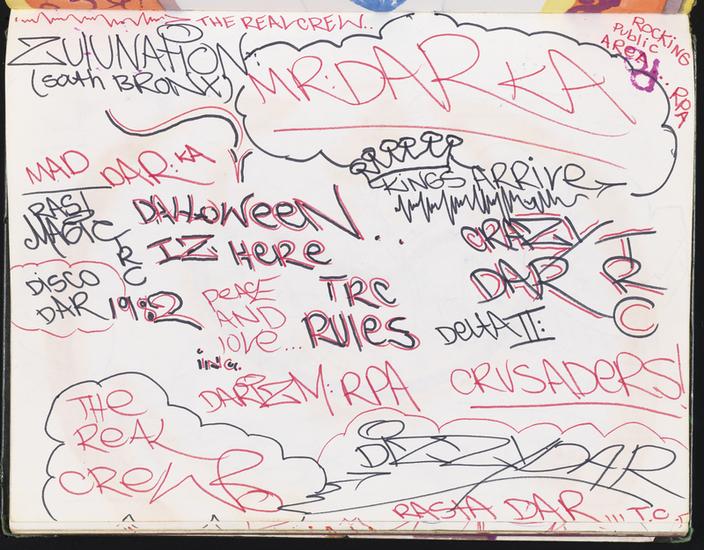 THE REAL CREW..
ZULUNATION
(South BRONX)
MR. DAR KA
ROCKING
Public
AREA...
RPA
MAD DAR:KA
KINGS ARRIVE
RAST
MAGIC
TRC
DALLOWEEN..
IZ HERE
CRAZY
DAR
TRC
DISCO
DAR
1982
PEACE
AND
LOVE...
INC.
TRC
RULES
DELTA II:
DARIZM:RPA
CRUSADERS!
THE
REAL
CREW
DIZZYDAR
RASTA DAR !!! T.C.